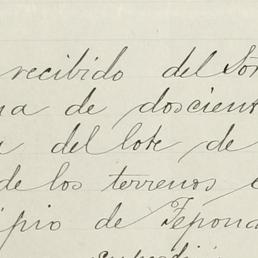 recibido del Sor
ma de doscient
del lote de
de los terrenos
ipio de Tepona
superfi